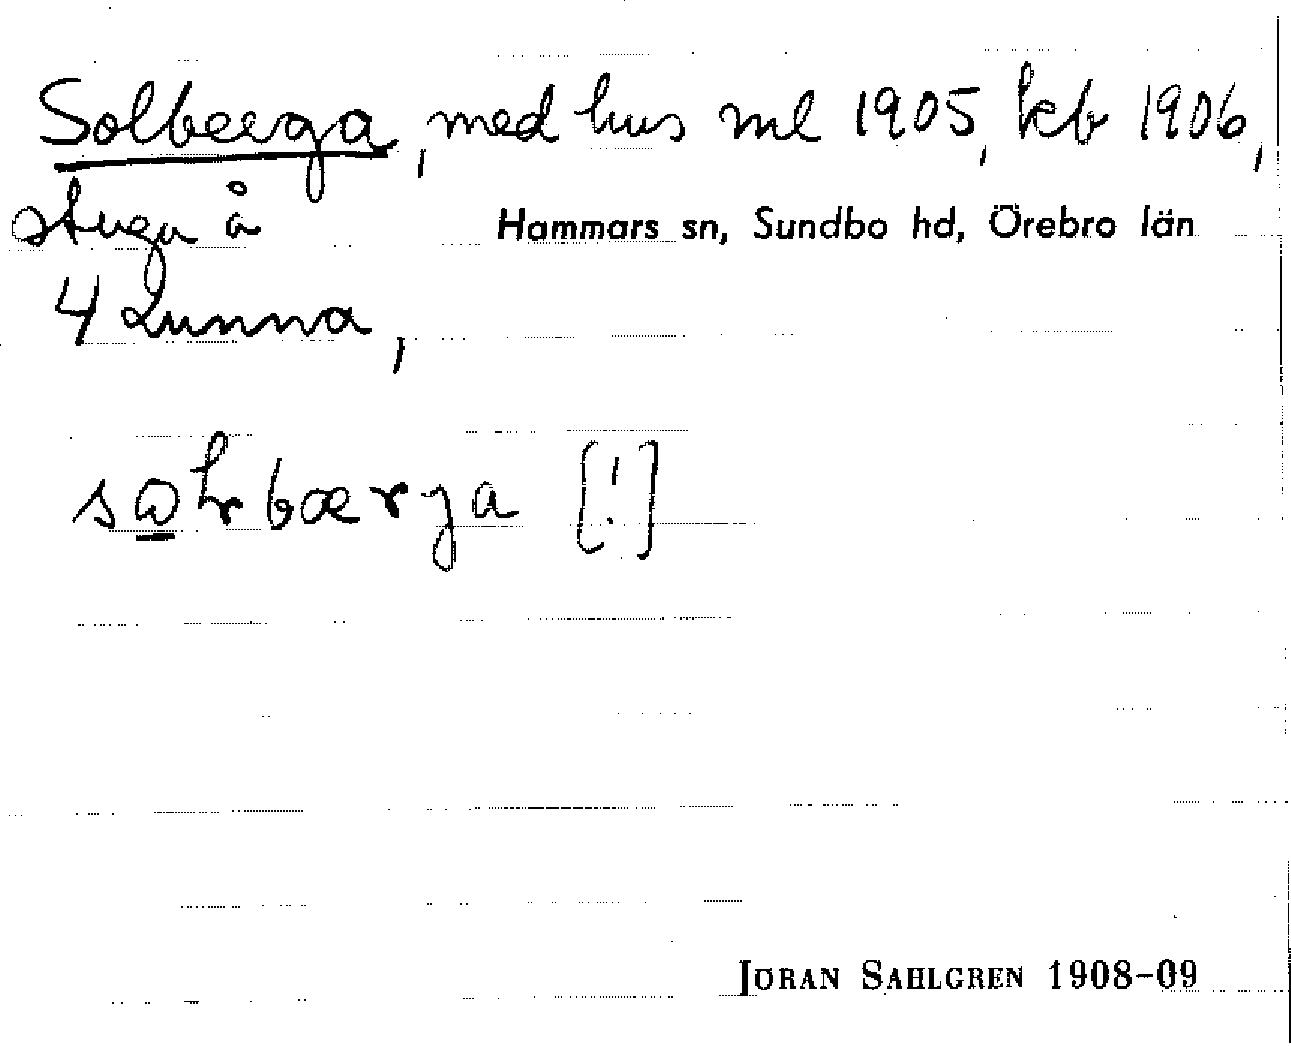 Solberga, med hus ml 1905, kb 1906,
stuga å
Hammars sn, Sundbo hd, Örebro län
4 Lunna,
[!]
JÖRAN SAHLGREN 1908-09